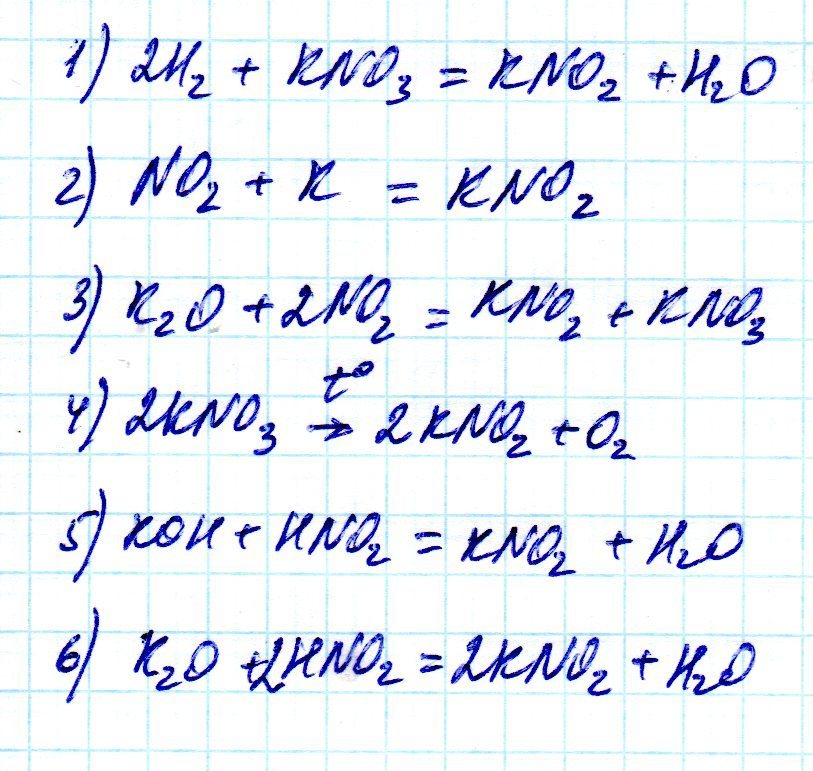 1) 2H₂ + KNO₃ = KNO₂ + H₂O
2) NO₂ + K = KNO₂
3) K₂O + 2NO₂ = KNO₂ + KNO₃
4) 2KNO₃ t°→ 2KNO₂ + O₂
5) KOH + HNO₂ = KNO₂ + H₂O
6) K₂O + 2HNO₂ = 2KNO₂ + H₂O